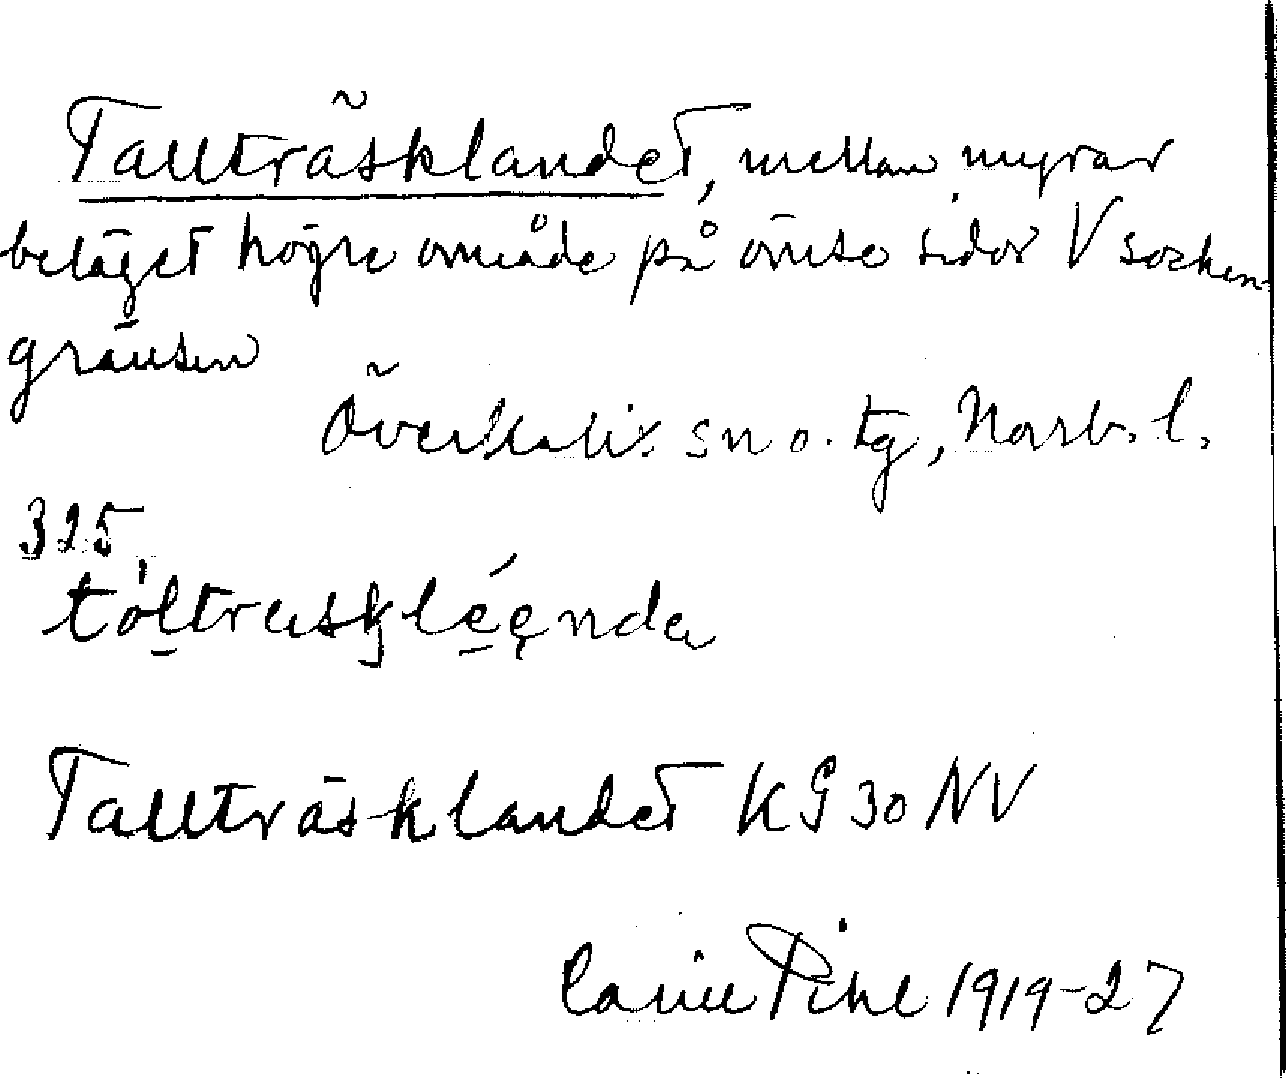 Tallträsklandet, mellan myrar
beläget högre område på ömse sidor V socken-
gränsen
Överkalix sn o. tg, Norrb. l.
325
Tallträsklandet KG 30 NV
Carin Pihl 1919-27